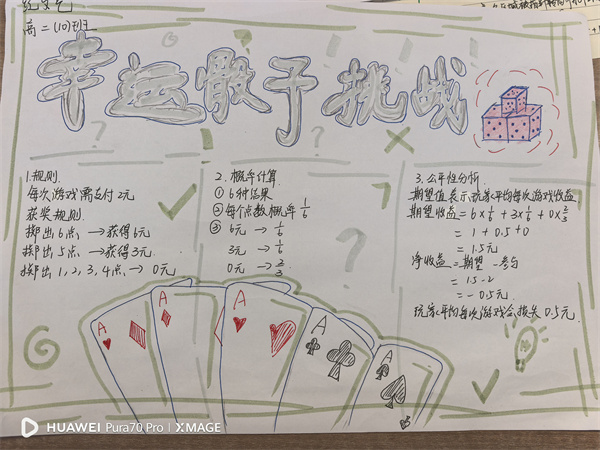 高二(10)班
幸运骰子挑战
1.规则
每次游戏需支付2元
获奖规则
掷出6点 → 获得6元
掷出5点 → 获得3元
掷出1,2,3,4点 → 0元
2.概率计算
① 6种结果
② 每个点数概率 1/6
③ 6元 → 1/6
3元 → 1/6
0元 → 2/3
3.公平性分析
期望值表示玩家平均每次游戏收益
期望收益=6×1/6+3×1/6+0×2/3
=1+0.5+0
=1.5元
净收益=期望-参与
=1.5-2
=-0.5元
玩家平均每次游戏会损失0.5元
A
A
A
A
A
HUAWEI Pura70 Pro | XMAGE